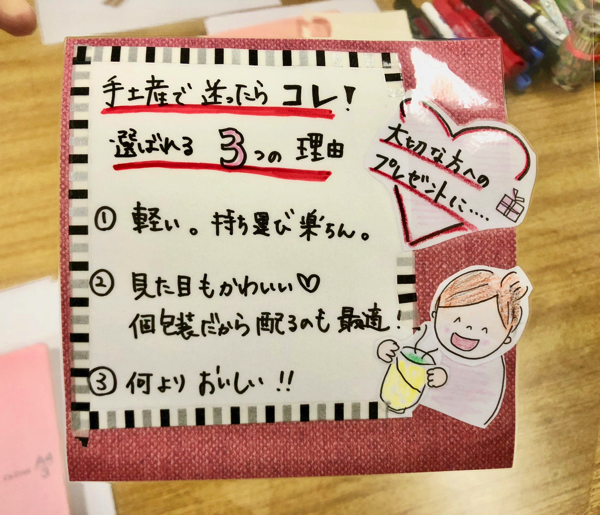 手土産で迷ったらコレ!
選ばれる3つの理由
① 軽い。持ち運び楽ちん。
② 見た目もかわいい♡
個包装だから配るのも最適!
③ 何よりおいしい!!
大切な方への
プレゼントに....